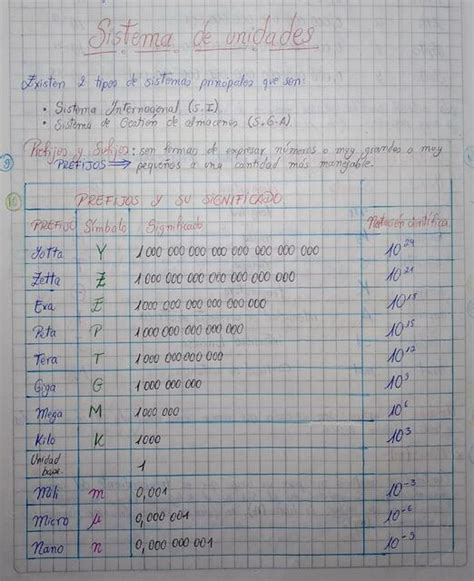 Sistema de unidades
Existen 2 tipos de sistemas principales que son:
• Sistema Internacional (S.I)
• Sistema de Gestión de almacenes (S.G.A)
Prefijos y Sufijos: son formas de expresar números o muy grandes o muy
PREFIJOS ⟹ pequeños a una cantidad más manejable.
PREFIJOS Y SU SIGNIFICADO
PREFIJO Símbolo Significado Notación científica
Yotta Y 1 000 000 000 000 000 000 000 000 10²⁴
Zetta Z 1 000 000 000 000 000 000 000 10²¹
Exa E 1000 000 000 000 000 000 10¹⁸
Peta P 1 000 000 000 000 000 10¹⁵
Tera T 1 000 000 000 000 10¹²
Giga G 1 000 000 000 10⁹
Mega M 1000 000 10⁶
Kilo K 1000 10³
Unidad
base 1
Mili m 0,001 10⁻³
Micro μ 0,000 001 10⁻⁶
Nano n 0,000 000 001 10⁻⁹